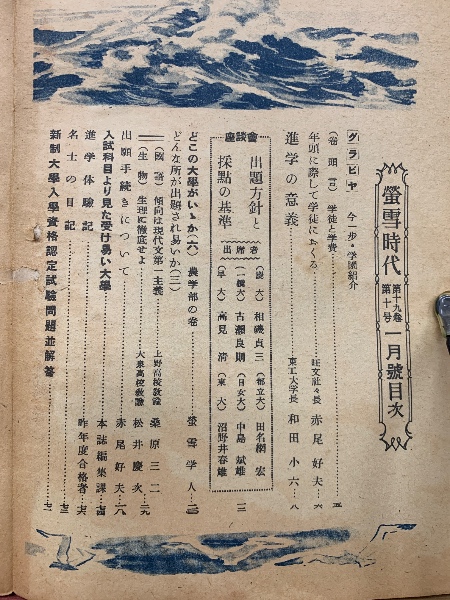 螢雪時代 第十九卷 第十号 一月號目次
グラビヤ 今一歩・学園紹介
(卷頭言) 学徒と学費……五
年頭に際して学徒におくる……旺文社々長 赤尾好夫…六
進学の意義……東工大学長 和田小六…八
座談會
出題方針と
採點の基準……一二
出席者
相磯貞三 (都立大) 田名網宏
(一橋大) 古瀬良則 (日女大) 中島斌雄
(早大) 高見濤 (東大) 沼野井春雄
どこの大學がいゝか(六) 農学部の卷……螢雪学人
どんな所が出題され易いか(三)
(國語) 傾向は現代文第一主義……上野高校敎諭 桑原三二
(生物) 生理に徹底せよ……大泉高校敎諭 松井慶次
出願手続きについて……赤尾好夫
入試科目より見た受け易い大學……本誌編集課
進学体驗記……昨年度合格者
名士の日記
新制大學入學資格認定試驗問題並解答